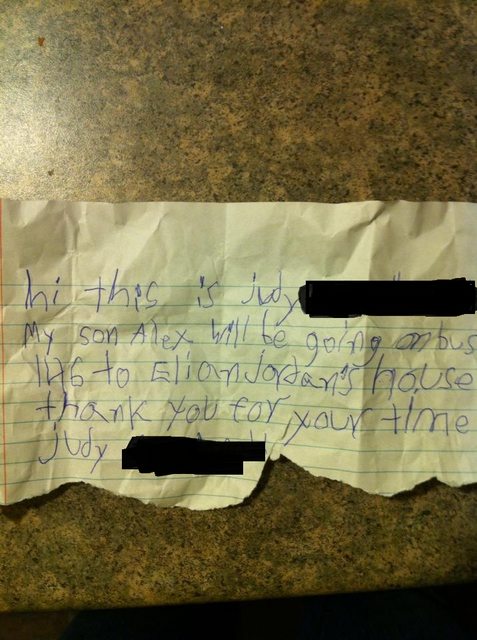 hi this is judy
My son Alex will be going on bus
176 to Elian Jordan's house
thank you for your time
judy